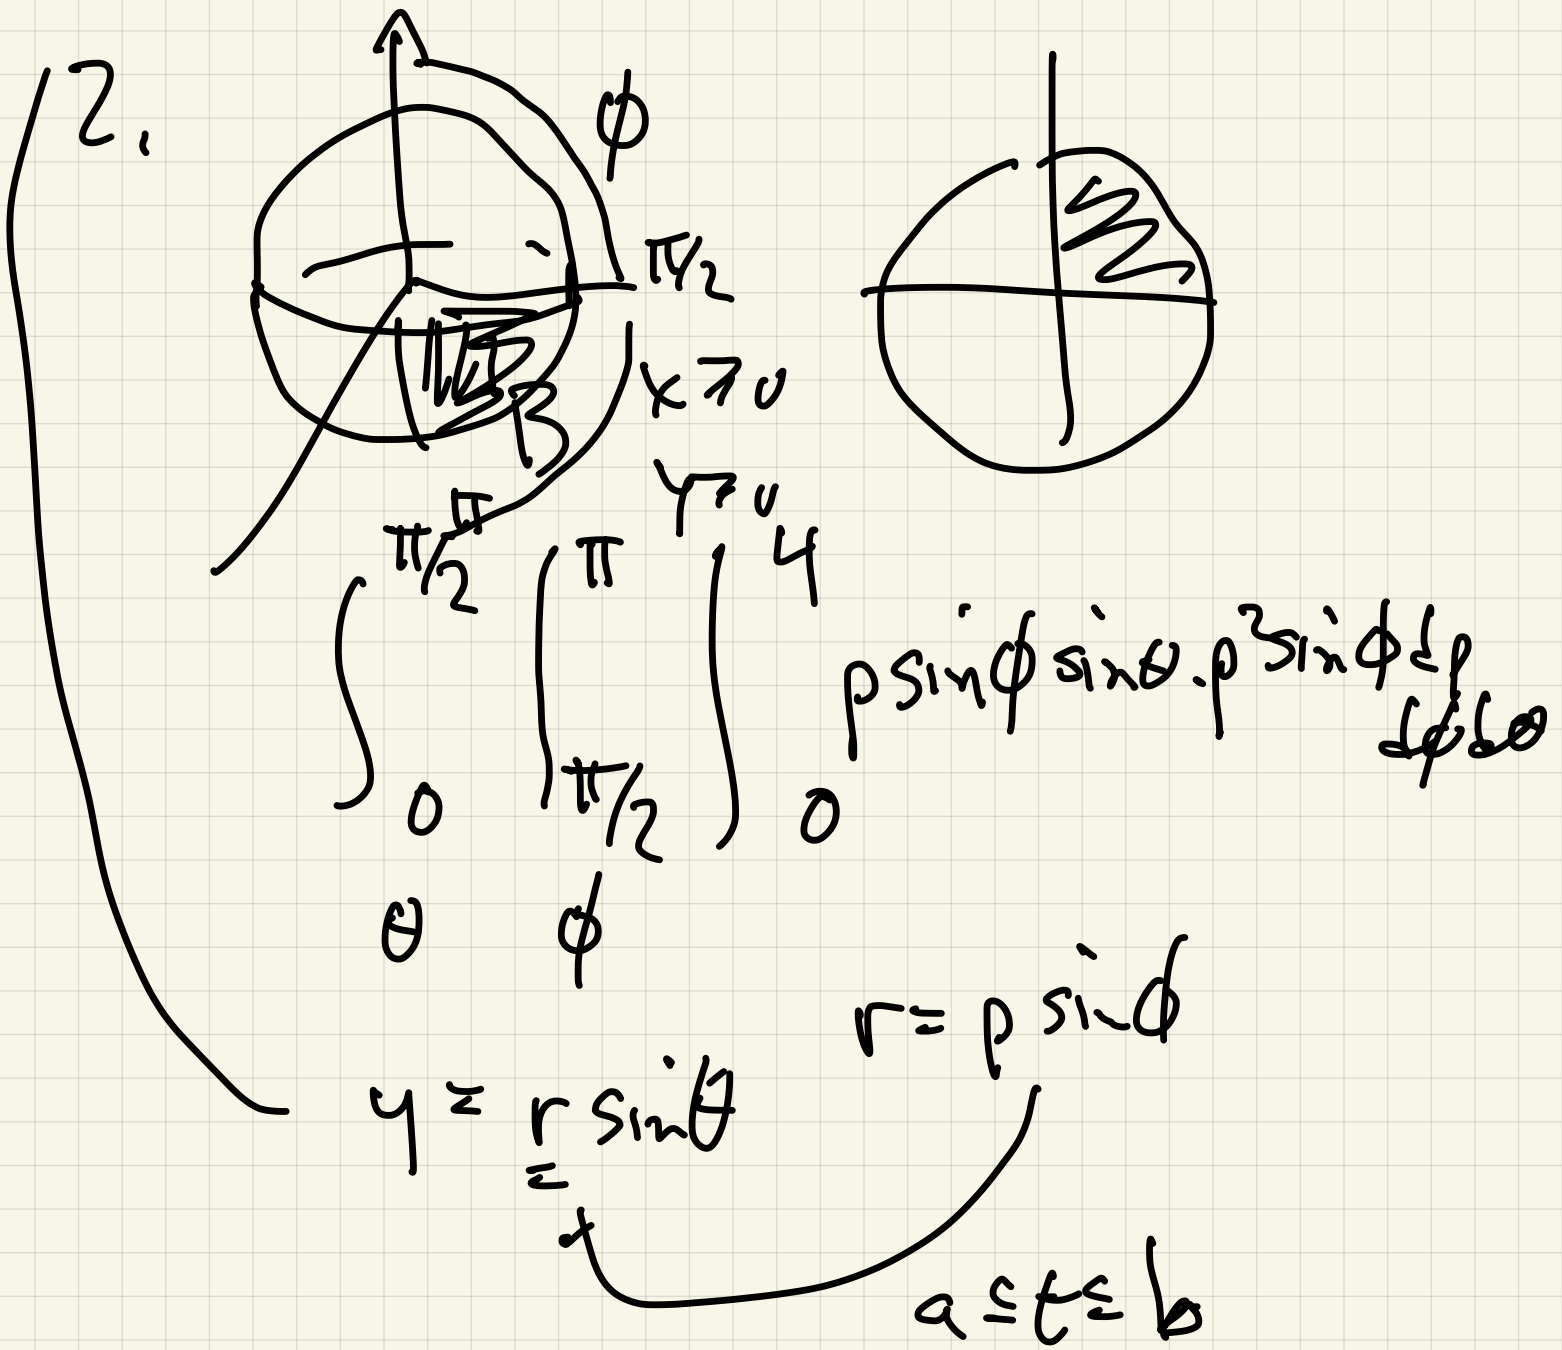 2.
ϕ
π/2
x ≥ 0
B
y ≥ 0
π
π/2 π 4
∫ ∫ ∫ ρ sinϕ sinθ . ρ² sinϕ dρ
dϕ dθ
0 π/2 0
θ ϕ
r = ρ sinϕ
y = r sinθ
=
a ≤ t ≤ b